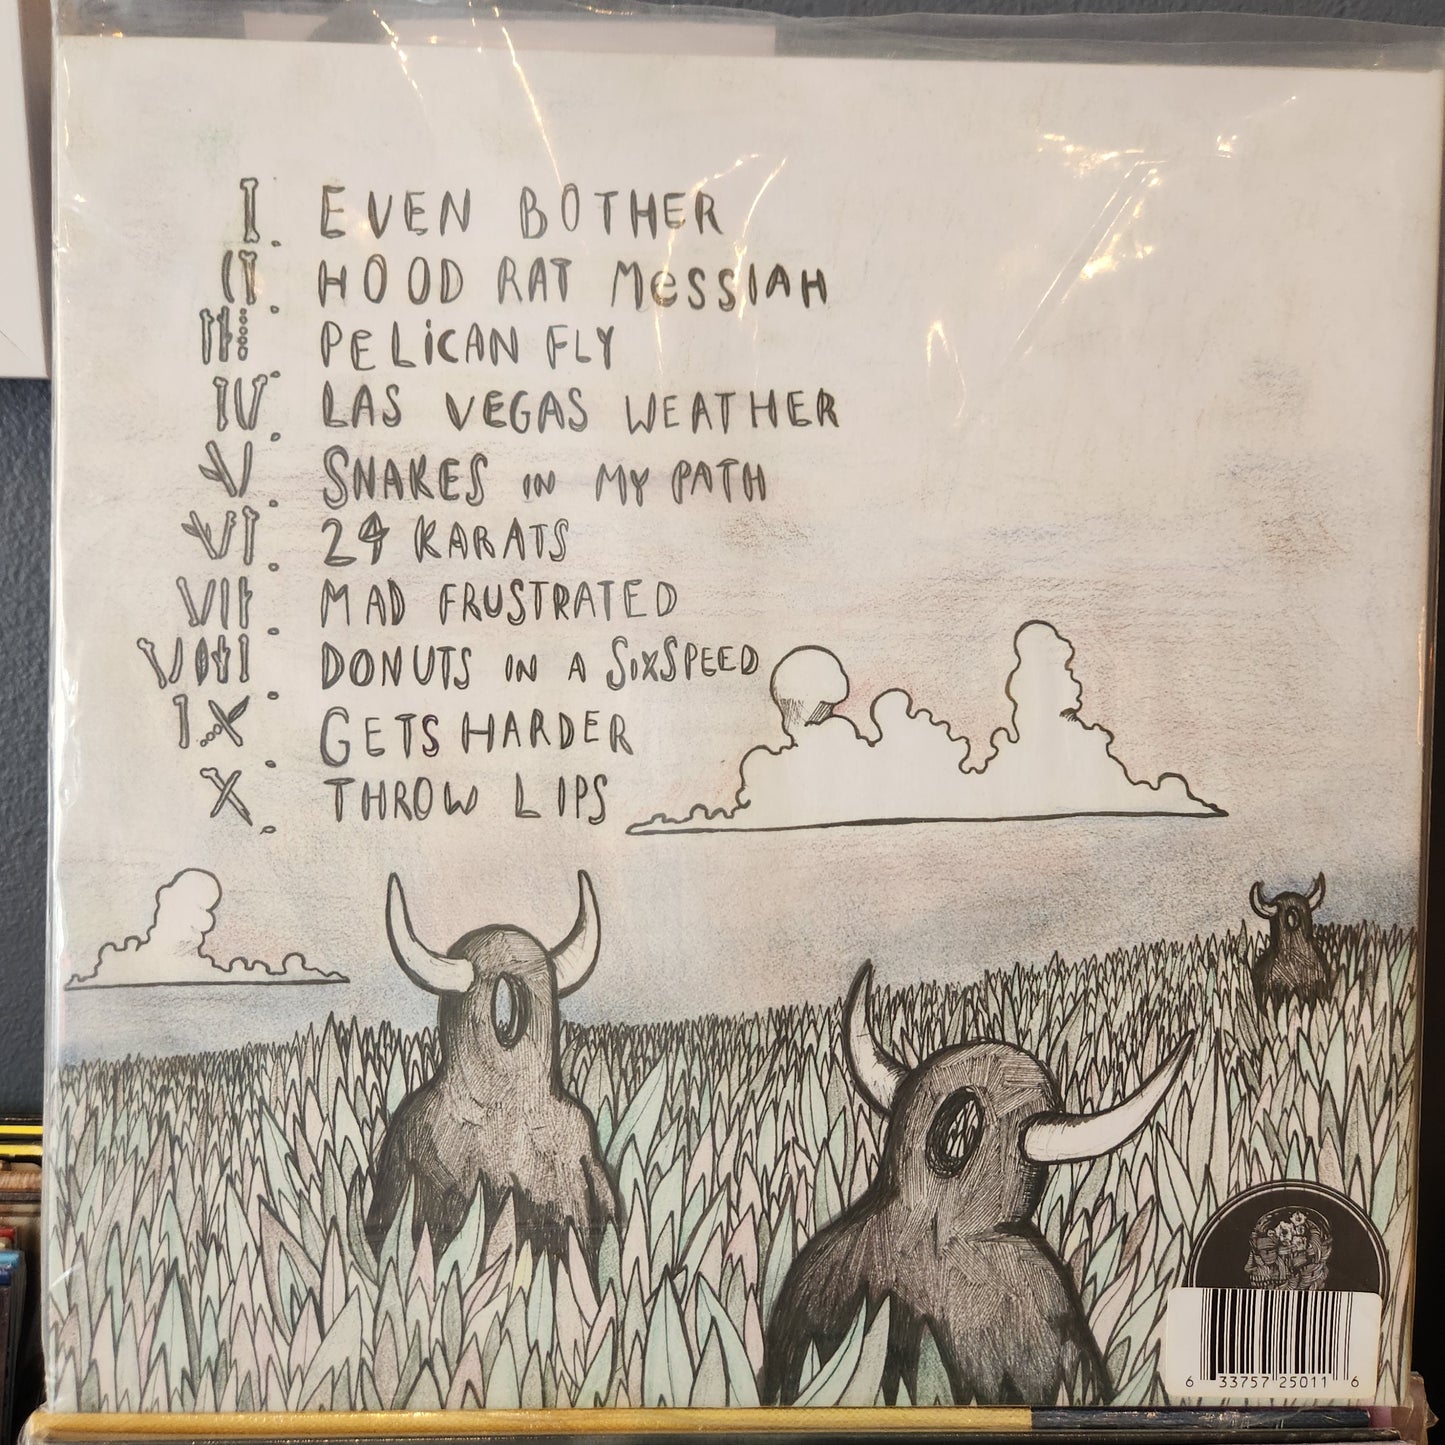 I. EVEN BOTHER
II. HOOD RAT MeSSIAH
III. PELiCAN FLY
IV. LAS VEGAS WEATHER
V. SNAKES IN MY PATH
VI. 24 KARATS
VII. MAD FRUSTRATED
VIII. DONUTS IN A SIXSPEED
IX. GETS HARDER
X. THROW LIPS
6 33757 25011 6